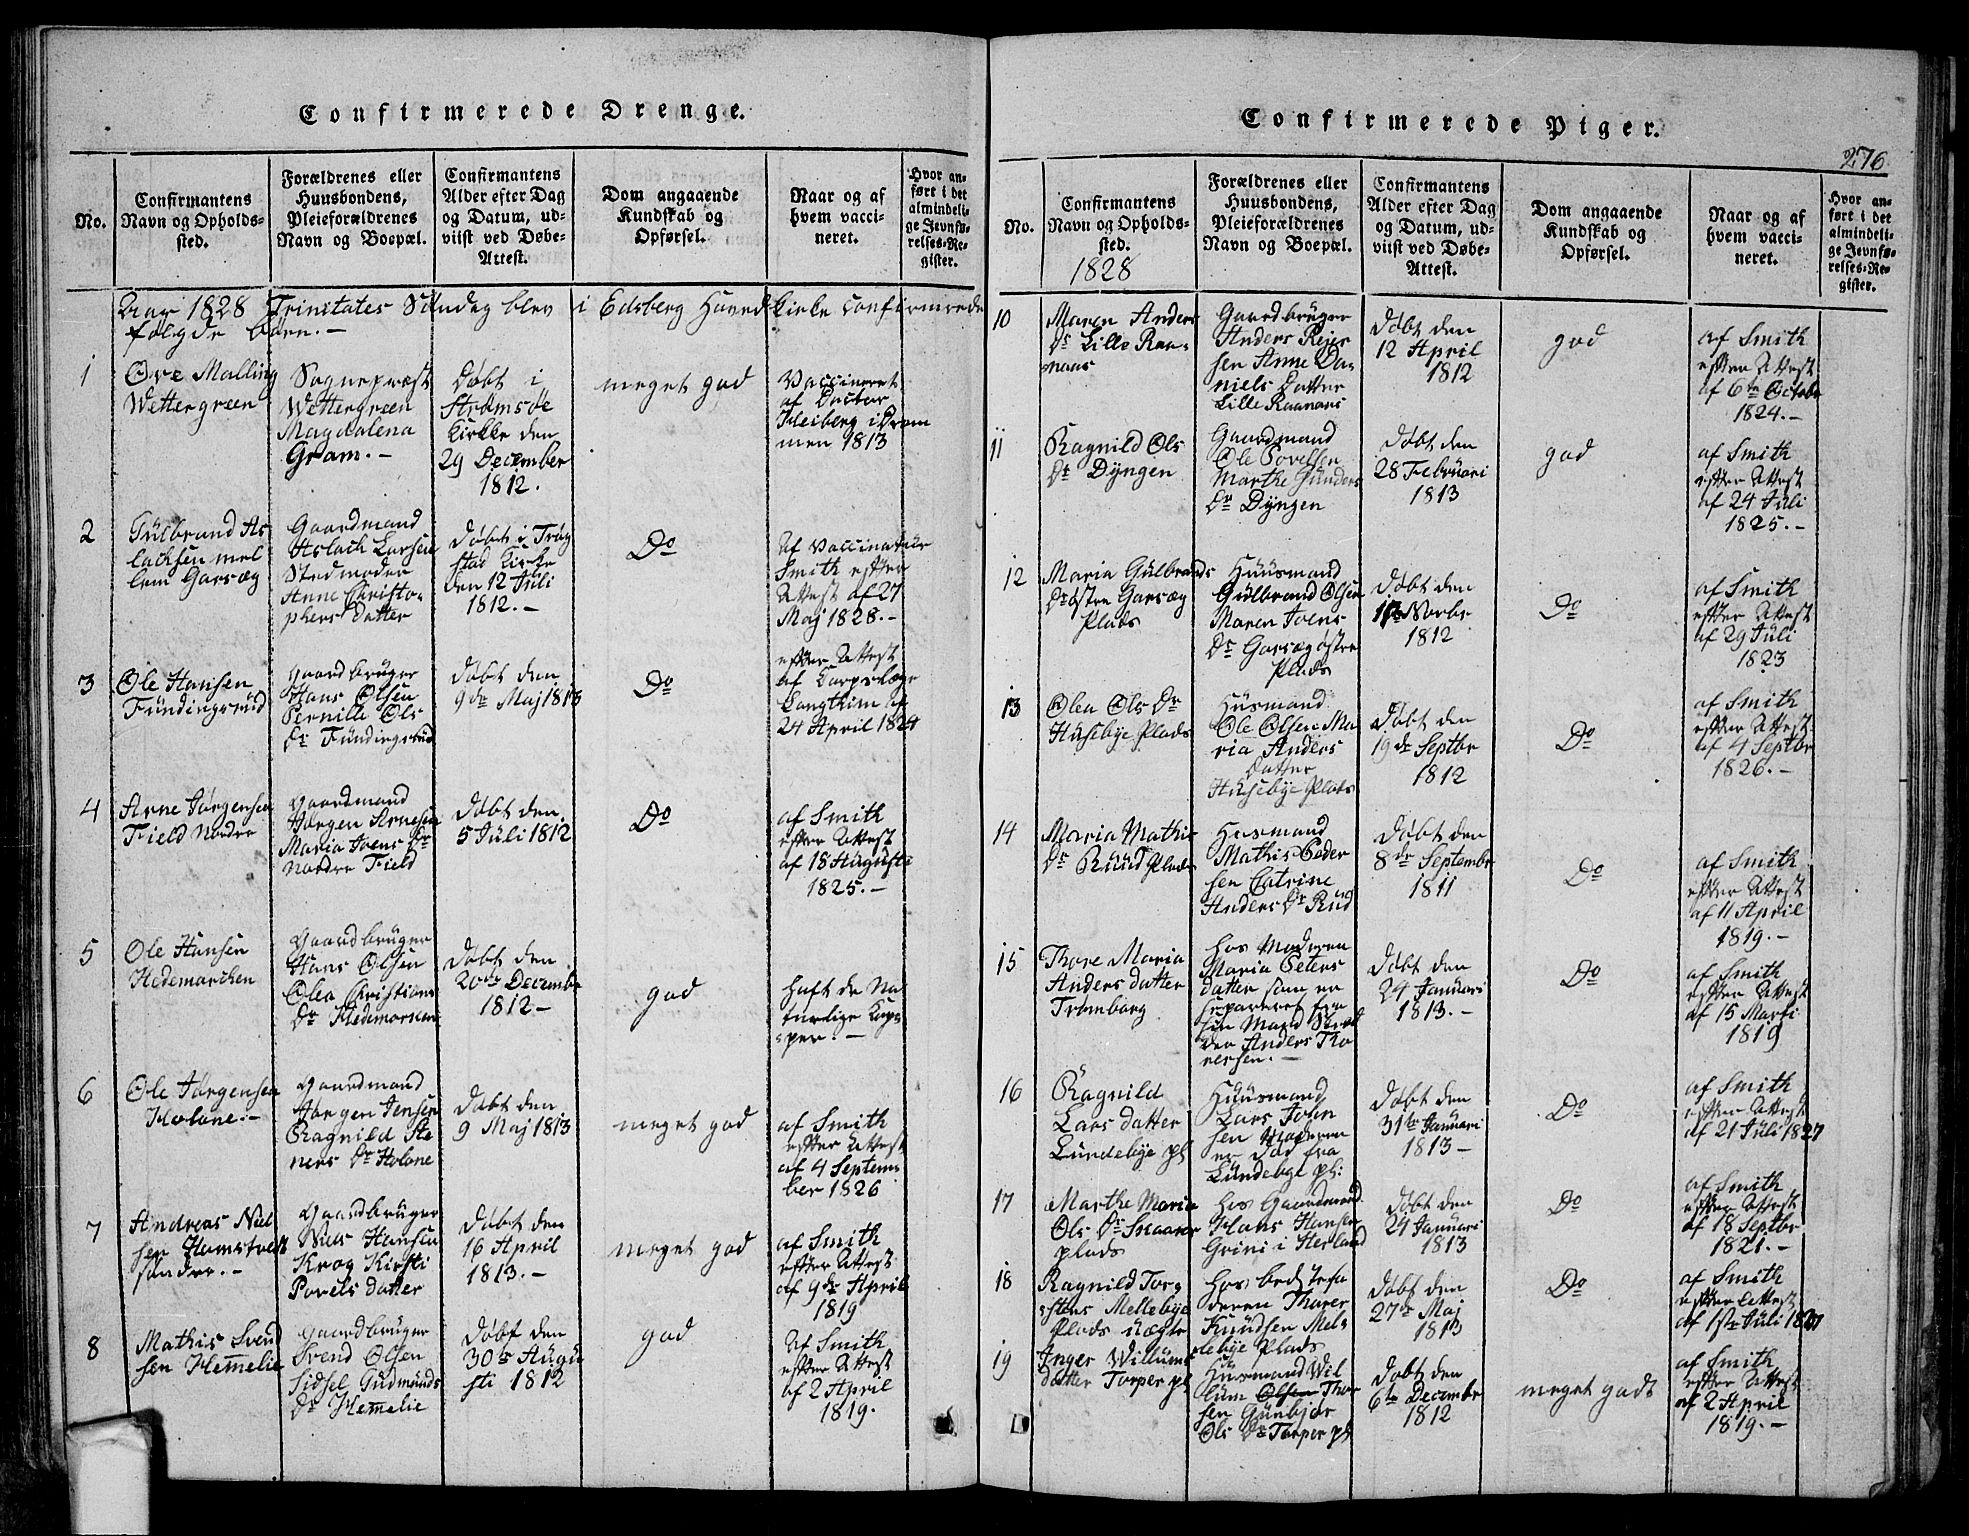 Confirmerede Drenge.
No.
Confirmantens
Navn og Opholds-
sted.
Forældrenes eller
Huusbondens,
Pleieforældrenes
Navn og Boepæl.
Confirmantens
Alder efter Dag
og Datum, ud-
viist ved Døbe-
Attest.
Dom angaaende
Kundskab og
Opførsel.
Naar og af
hvem vacci-
neret.
Hvor an-
ført i det
almindeli-
ge Jevnfø-
relses-Re-
gister.
Aar 1828 Trinitates Søndag blev i Edsberg Hoved Kirke confirmerede
følgde børn.-
1
Ove Malling
Wettergreen
Sognepræst
Wettergreen
Magdalena
Gram.-
Døbt i
Strømsøe
Kirkke den
29 December
1812.
meget god
Vaccineret
af Doctor
Heiberg i Dram
men 1813
2
Gülbrand As
lachsen mel
lem Garsæg
Gaardmand
Aslach Larsen
Stedmoder
Anne Christo-
phers datter
døbt i Trøg
stad Kirke
den 12 Juli
1812.-
Do
af Vaccinateur
Smith efter
Attest af 27
Maj 1828.-
3
Ole Hansen
Fündingsrüd
Gaardbrüger
Hans Olsen
Pernille Ols
Dr Fündingsrüd
døbt den
9de Maj 1813
Do
efter Attest
af Corpslæge
Langthim af
24 April 1824
4
Arne Jørgensen
Field Nordre
Gaardmand
Jørgen Arnesen
Maria Joens Dr
Nordre Field
døbt den
5 Jüli 1812
Do
af Smith
efter Attest
af 18 Augusti
1825.-
5
Ole Hansen
Hedemarchen
Gaardbrüger
Hans Olsen
Olea Christians
Dr Hedemarken
døbt den
20de Decembr
1812-
god
haft de Na
turlige Kop
per.-
6
Ole Jørgensen
Holone.-
Gaardmand
Jørgen Jensen
Ragnild Ste
ners Dr Holone
døbt den
9 Maj 1813
meget god
af Smith
efter Attest
af 4 Septem
ber 1826
7
Andreas Niel
sen Hamstvedt
søndre.-
Gaardbrüger
Niels Hansen
Krog Kirsti
Povels datter
døbt den
16 April
1813.-
meget god
af Smith
efter Attest
af 9de April
1819
8
Mathis Svend
sen Hemmelie
Gaardbrüger
Svend Olsen
Sidsel Gudmünds
Dr Hemmelie
døbt den
30te Augu
sti 1812
god
af Smith
efter Attest
af 2 April
1819.
Confirmerede Piger.
276
No.
Confirmantens
Navn og Opholds-
sted.
1828
Forældrenes eller
Huusbondens,
Pleieforældrenes
Navn og Boepæl.
Confirmantens
Alder efter Dag
og Datum, ud-
viist ved Døbe-
Attest.
Dom angaaende
Kundskab og
Opførsel.
Naar og af
hvem vacci-
neret.
Hvor an-
ført i det
almindeli-
ge Jevnfø-
relses-Re-
gister.
10
Maren Anders
Dr Lille Raa-
naas
Gaardbrüger
Anders Reier
sen Anne Da-
niels Datter
Lille Raanaas
Døbt den
12 April
1812
god
af Smith
efter Attest
af 6te Octobr
1824.-
11
Ragnild Ols
Dr Dÿngen
Gaardmand
Ole Povelsen
Marthe Günders
Dr Dyngen
døbt den
28 Februari
1813
god
af Smith
efter Attest
af 24 Juli
1825.-
12
Maria Gülbrands
Dr østre Garsæg
Plads
Huusmand
Gülbrand Olsen
Maren Joens
Dr Garsæg østre
Plads
døbt den
Novbr
1812
Do
af Smith
efter Attest
af 29 Juli
1823
13
Olea Ols Dr
Husebÿe Plads
Hüsmand
Ole Olsen Ma-
ria Anders
Datter
Husebÿe Plads
døbt den
19de Septbr
1812
Do
af Smith
efter Attest
af 4 Septbr
1826.-
14
Maria Mathis
Dr Ruud Plads
Husmand
Mathis Peder
sen Catrine
Anders Dr Rüd
døbt den
8de Septembr
1811
Do
af Smith
efter Attest
af 11 April
1819.-
15
Thore Maria
Anders datter
Trømborg
hos Moderen
Maria Peters
datter som er
separeret fra
sin Mand
Anders Tho
resen.-
døbt den
24 Januari
1813.-
Do
af Smith
efter Attest
af 15 Marti
1819
16
Ragnild
Lars datter
Lundebÿe pl
Huusmand
Lars John
sen Moderen
er død fra
Lündebÿe pl:
døbt den
31te Januari
1813-
Do
af Smith
efter Attest
af 21 Juli 1827
17
Marthe Maria
Ols Dr Snaarer
plads
hos Gaardmand
Hans Hansen
Grini i Herland
døbt den
24 Januari
1813
Do
af Smith
efter Attest
af 18 Septbr
1821.-
18
Ragnild Torg
stens Mellebÿe
Plads uægte
hos bedstefa
deren Tharer
Knudsen Mel-
lebÿe Plads
døbt den
27de Maj
1813
Do
af Smith
efter Attest
af 1ste Juli
19
Inger Willüms
datter Torper pl
Husmand Wil
lum Olsen Thor
sen Günbjør
Ols Dr Torper pl
døbt den
6te Decembr
1812
meget godt
af Smith
efter Attest
af 2 April
1819.-